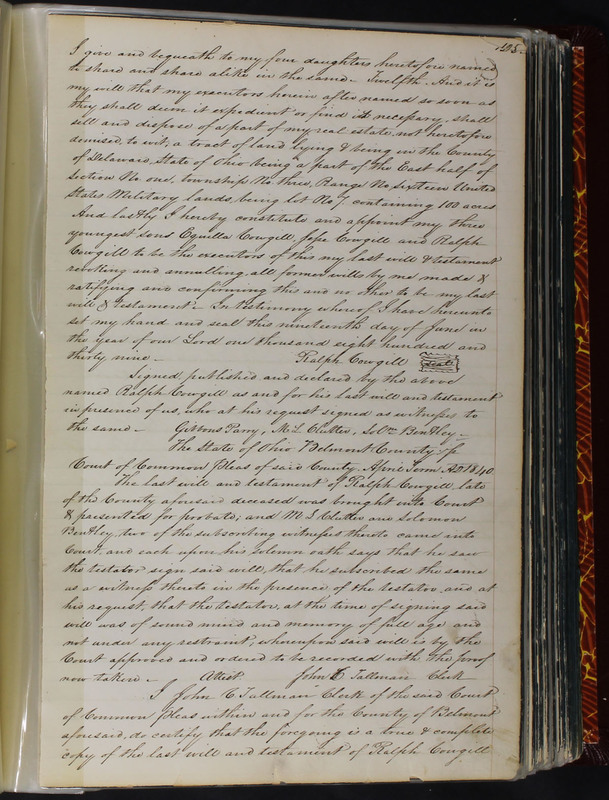 195
I give and bequeath to my four daughters heretofore named
to share and share alike in the same – Twelfth – And it is
my will that my executors herein after named so soon as
they shall deem it expedient or find it necessary, shall
sell and dispose of a part of my real estate, not heretofore
demised, to wit; a tract of land lying & being in the County
of Delaware, State of Ohio being a part of the East half of
Section No one, township No three, Range No sixteen United
States Military lands, being lot No 7 containing 100 acres
And lastly I hereby constitute and appoint my three
youngest sons Equilla Cowgill, Jesse Cowgill and Ralph
Cowgill to be the executors of this my last will & testament
revoking and annulling all former wills by me made &
ratifying and confirming this and no other to be my last
will & testament – In testimony whereof I have hereunto
set my hand and seal this nineteenth day of June in
the year of our Lord one thousand eight hundred and
thirty nine – Ralph Cowgill seal
Signed, published and declared by the above
named Ralph Cowgill as and for his last will and testament
in presence of us, who at his request signed as witnesses to
the same – Gibbons Parry, M. L. Clutter, Solmn Benthey –
The State of Ohio Belmont County Ss
Court of Common pleas of said County April Term AD 1840
The last will and testament of Ralph Cowgill, late
of the County aforesaid deceased was brought into Court
& presented for probate; and M. L. Clutter and Solomon
Benthey, two of the subscribing witnesses thereto came into
Court, and each upon his solemn oath says that he saw
the testator sign said will, that he subscribed the same
as a witness thereto in the presence of the testator and at
his request, that the testator, at the time of signing said
will was of sound mind and memory of full age and
not under any restraint; whereupon said will is by the
Court approved and ordered to be recorded with the proof
now taken – Attest John C Tallman Clerk
I John C. Tallman Clerk of the said Court
of Common pleas within and for the County of Belmont
aforesaid, do certify that the foregoing is a true & complete
copy of the last will and testament of Ralph Cowgill